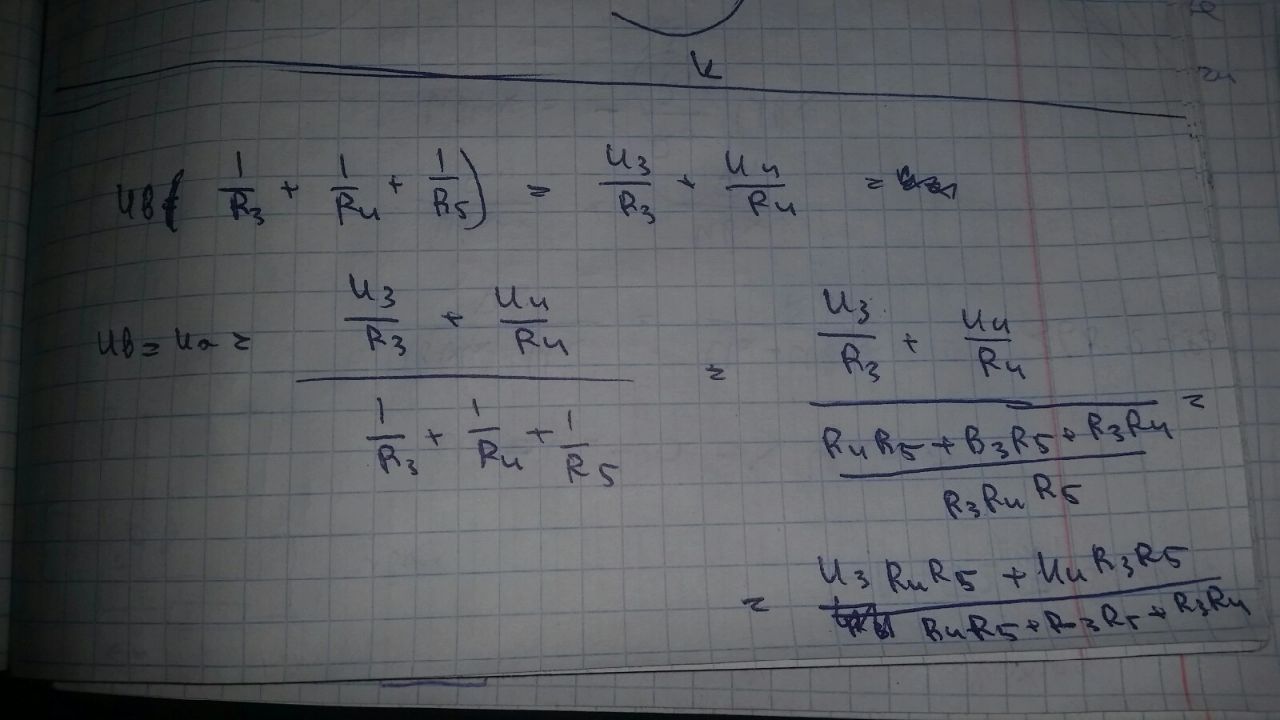 K
UB( 1/R3 + 1/R4 + 1/R5 ) = U3/R3 + U4/R4 =
UB = Ua = (U3/R3 + U4/R4) / (1/R3 + 1/R4 + 1/R5) = (U3/R3 + U4/R4) / ((R4R5 + R3R5 + R3R4) / R3R4R5) =
= (U3R4R5 + U4R3R5) / (R4R5 + R3R5 + R3R4)